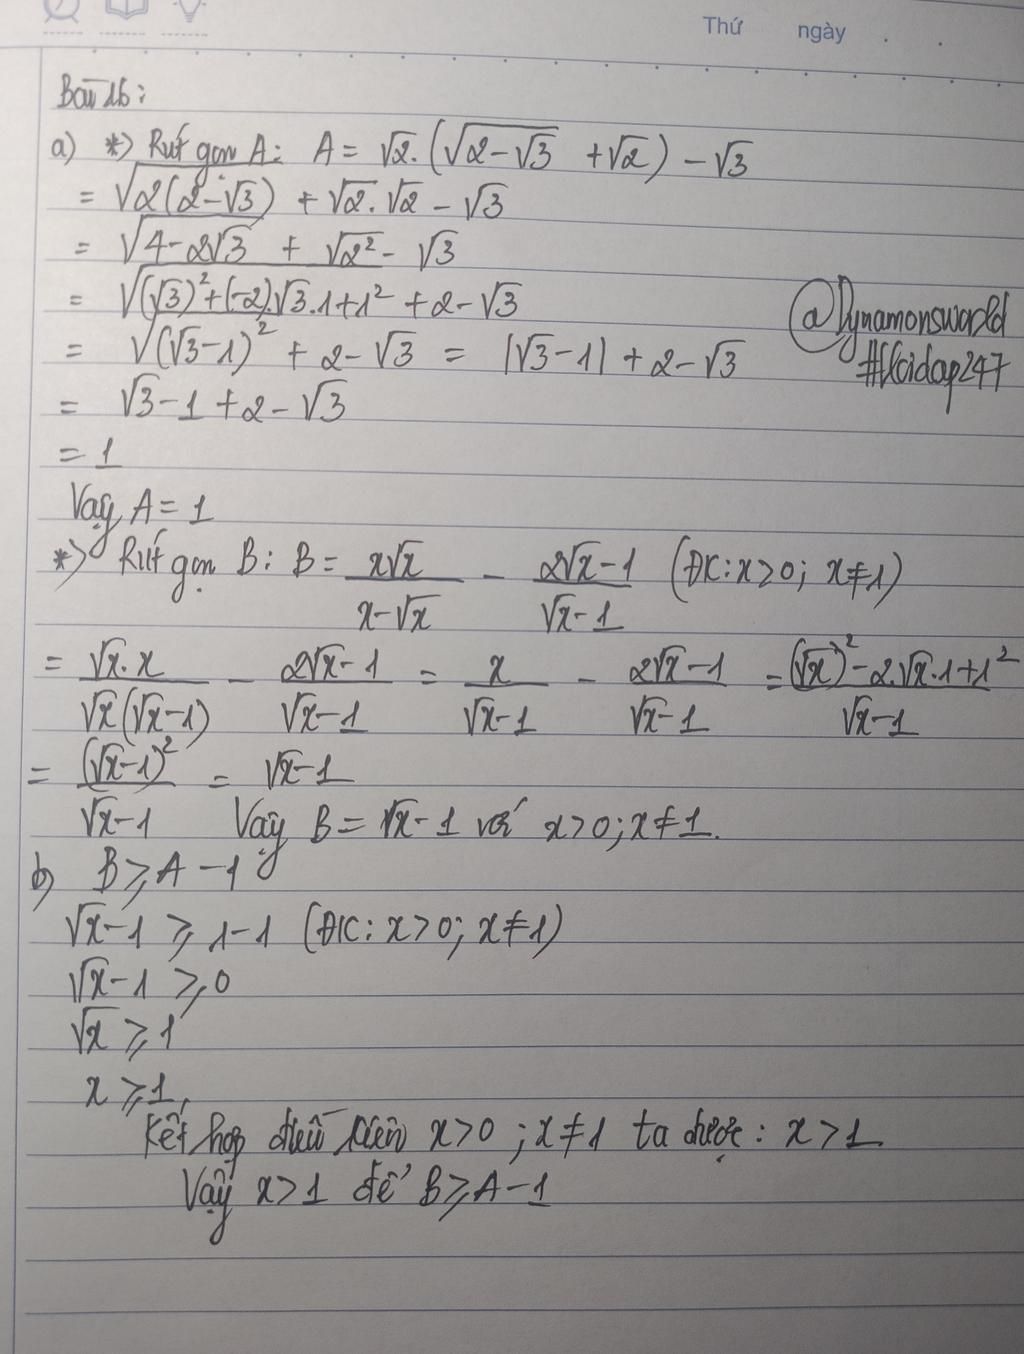 Thứ ngày . .
Bài 16:
a) *) Rút gọn A: A = √2.(√(2-√3) + √2) - √3
= √(2(2-√3)) + √2.√2 - √3
= √(4-2√3) + √(2²) - √3
= √((√3)²+(-2).√3.1+1²) + 2 - √3
= √((√3-1)²) + 2 - √3 = |√3-1| + 2 - √3
@Dynamonsworld
#Hoidap247
= √3 - 1 + 2 - √3
= 1
Vậy A = 1
*) Rút gọn B: B = x√x/(x-√x) - (2√x-1)/(√x-1) (ĐK: x>0; x≠1)
= √x.x/(√x(√x-1)) - (2√x-1)/(√x-1) = x/(√x-1) - (2√x-1)/(√x-1) = ((√x)²-2.√x.1+1²)/(√x-1)
= (√x-1)²/(√x-1) = √x-1
Vậy B = √x-1 với x>0; x≠1.
b) B ⩾ A - 1
√x-1 ⩾ 1-1 (ĐK: x>0; x≠1)
√x-1 ⩾ 0
√x ⩾ 1
x ⩾ 1,
Kết hợp điều kiện x>0; x≠1 ta được: x>1
Vậy x>1 để B ⩾ A-1